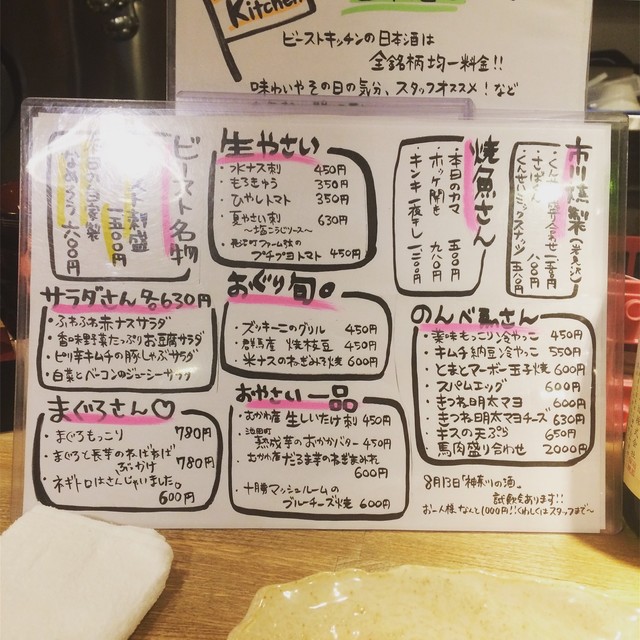 Kitchen
ビーストキッチンの日本酒は
全銘柄均一料金!!
味わいやその日の気分、スタッフオススメ!など
ビースト名物
一五〇〇
六〇〇円
生やさい
・水ナス刺 450円
・もろきゅう 350円
・ひやしトマト 350円
・夏やさい刺 630円
〜塩こうじソース〜
プチプヨトマト 450円
焼魚さん
・本日のカマ 五〇〇円
・ホッケ開き 九八〇円
・キンキ一夜干し 一二〇〇円
市川燻製
・くんせいミックスナッツ 五〇〇円
サラダさん各630円
・ふわふわ赤ナスサラダ
・香味野菜たっぷりお豆腐サラダ
・ピリ辛キムチの豚しゃぶサラダ
・白菜とベーコンのジューシーサラダ
おぐり旬。
・ズッキーニのグリル 450円
・群馬産 焼枝豆 450円
・米ナスのねぎみそ焼 600円
のんべえさん
・薬味もっこり冷やっこ 450円
・キムチ納豆冷やっこ 550円
・とまとマーボー玉子焼 600円
・スパムエッグ 600円
・きつね明太マヨ 600円
・きつね明太マヨチーズ 630円
・キスの天ぷら 650円
・馬肉盛り合わせ 2000円
まぐろさん♡
・まぐろもっこり 780円
・まぐろと長芋のねばねば
ぶっかけ 780円
・ネギトロはさんじゃいました。
600円
おやさい一品
・むかわ産 生しいたけ刺 450円
・池田町
熟成芋のおかかバター 450円
・むかわ産だるま芋のねぎまみれ
600円
・十勝マッシュルームの
ブルーチーズ焼 600円
8月13日「神奈川の酒」
試飲会あります!!
お一人様なんと1000円!!くわしくはスタッフまで〜